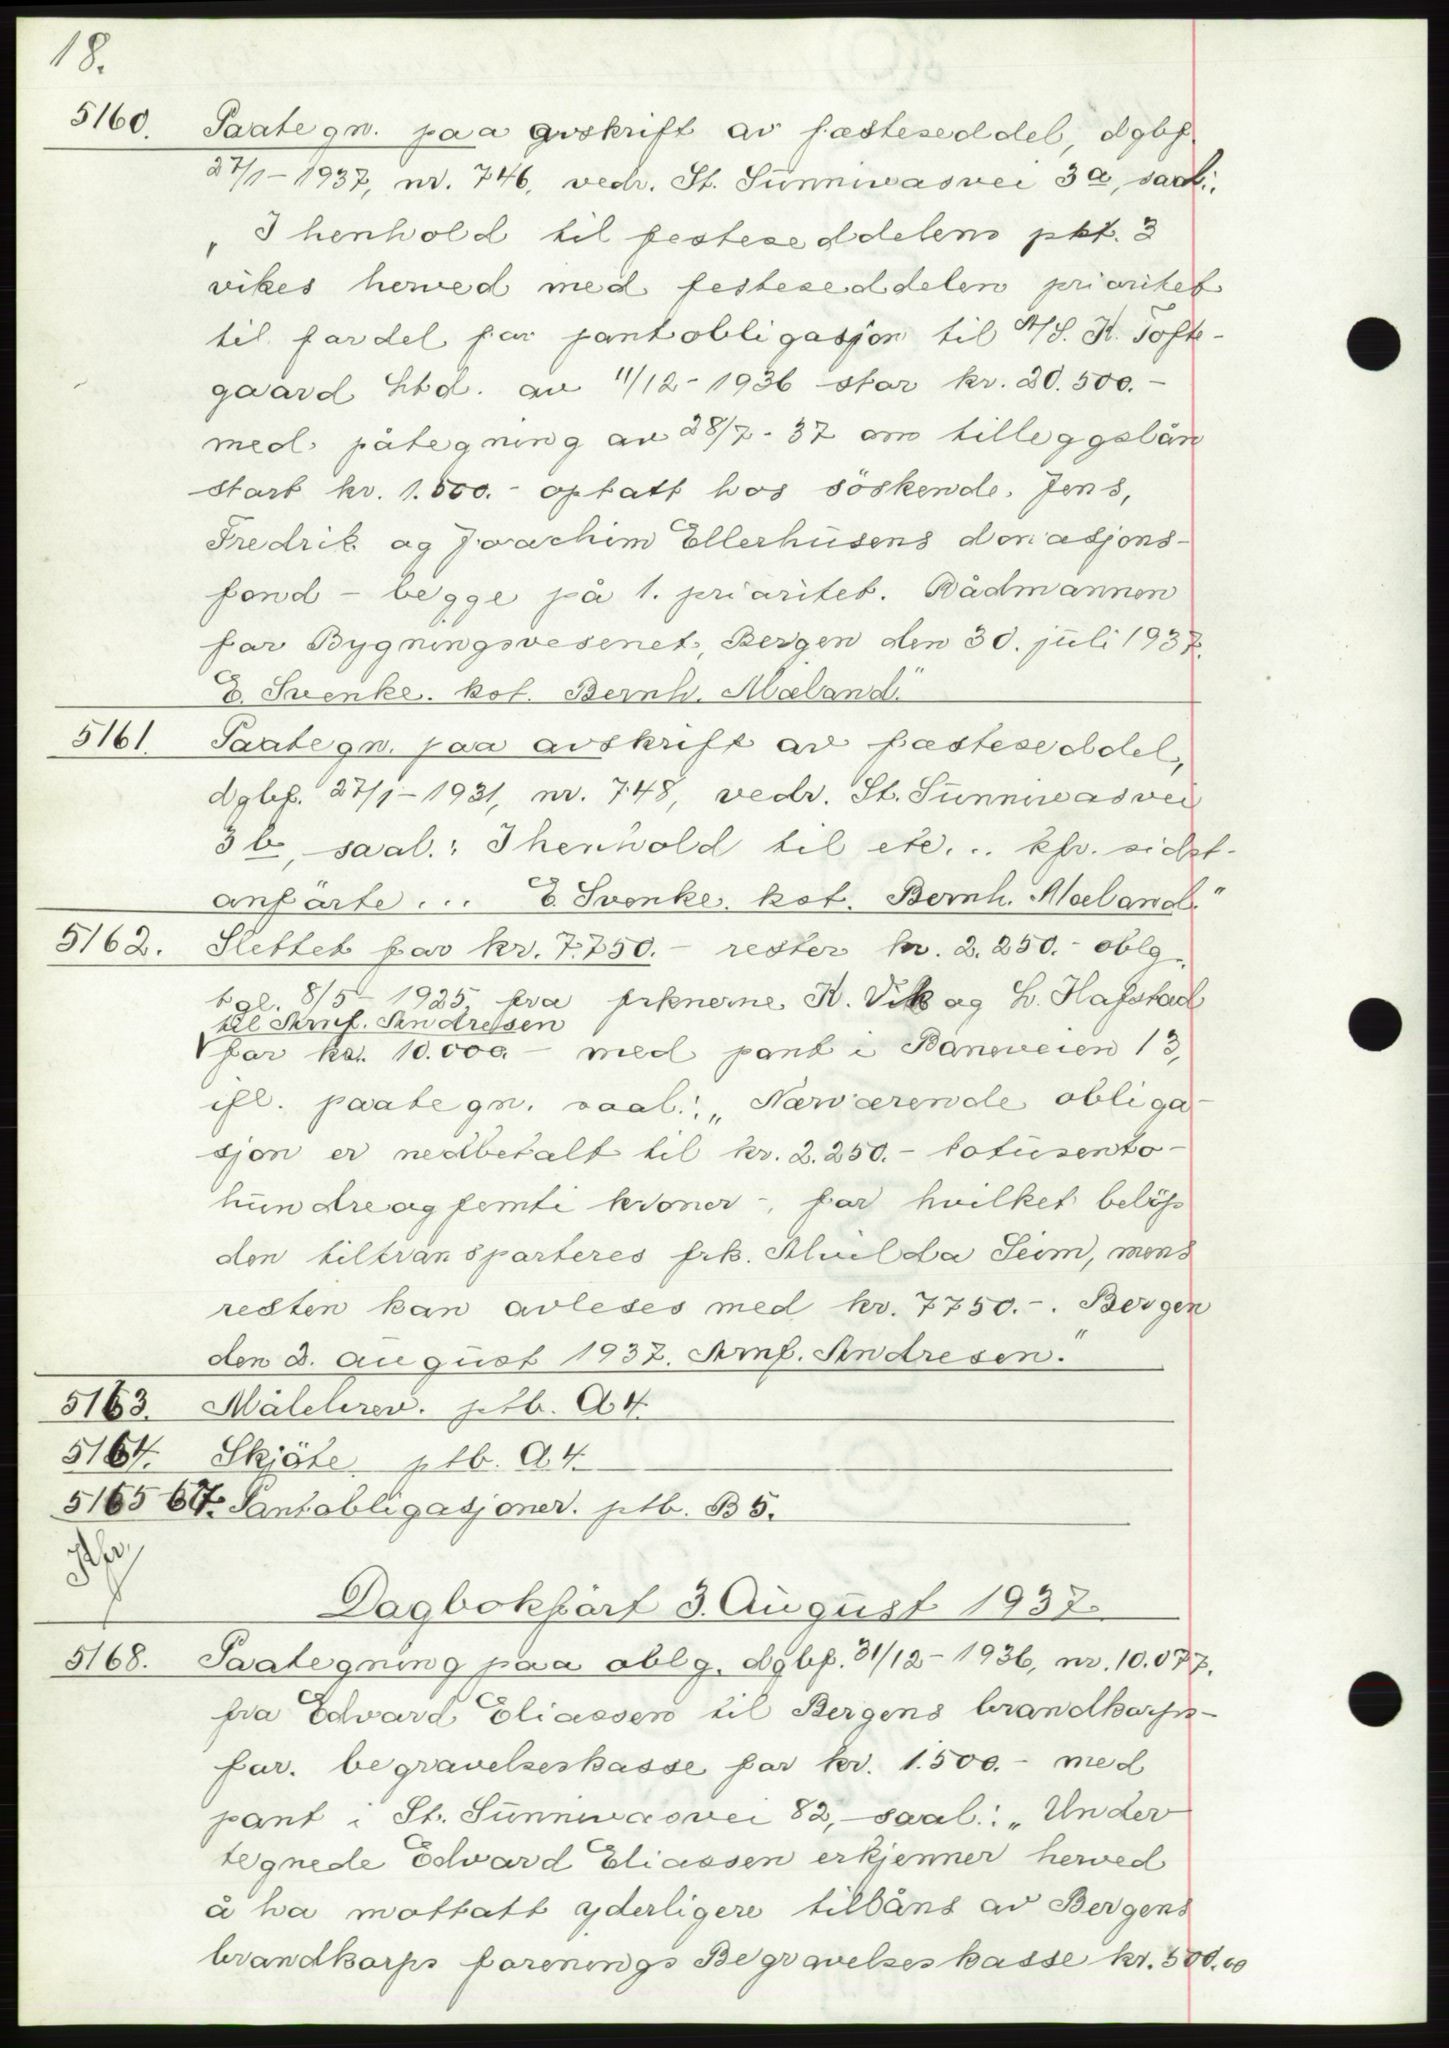 18.
5160. Paategn. paa avskrift av fæsteseddel, dgbf.
27/1-1937, nr. 746, vedr. St. Sunnivasvei 3a, saal.:
„I henhold til festeseddelens pkt. 3
vikes herved med festeseddelen prioritet
til fordel for pantobligasjon til A/S. K. Tofte-
gaard Ltd. av 11/12-1936 stor kr. 20.500.-
med påtegning av 28/7-37 om tilleggslån
stort kr. 1.500.- optatt hos söskende Jens,
Fredrik og Joachim Ellerhusens donasjons-
fond - begge på 1. prioritet. Rådmannen
for Bygningsvesenet, Bergen den 30. juli 1937.
E. Svenke. kst. Bernh. Mæland."
5161. Paategn. paa avskrift av fæsteseddel,
dgbf. 27/1-1931, nr. 748, vedr. St. Sunnivasvei
3b, saal.: I henhold til etc... kfr. sidst-
anförte... E. Svenke. kst. Bernh. Mæland."
5162. Slettet for kr. 7.750.- rester kr. 2.250.- oblg.
tgl. 8/5-1925 fra frknerne K. Vik og L. Hafstad
til Arnf. Andresen
for kr. 10.000.- med pant i Baneveien 13,
ifl. paategn. saal.: „Nærværende obliga-
sjon er nedbetalt til kr. 2.250.- totusento-
hundreogfemti kroner -, for hvilket belöp
den tiltransporteres frk. Alvilda Seim, mens
resten kan avleses med kr. 7750.-. Bergen
den 2. august 1937. Arnf. Andresen."
5163. Målebrev. ptb. A 4.
5164. Skjöte ptb. A 4.
5165 67. Pantobligasjoner. ptb. B 5.
Kfr,
Dagbokfört 3. August 1937.
5168. Paategning paa oblg. dgbf. 31/12-1936, nr. 10.077.
fra Edvard Eliassen til Bergens brandkorps-
for. begravelseskasse for kr. 1.500.- med
pant i St. Sunnivasvei 82, saal.: „Under
tegnede Edvard Eliassen erkjenner herved
å ha mottatt yderligere tillåns av Bergens
brandkorps forenings Begravelseskasse kr. 500.00